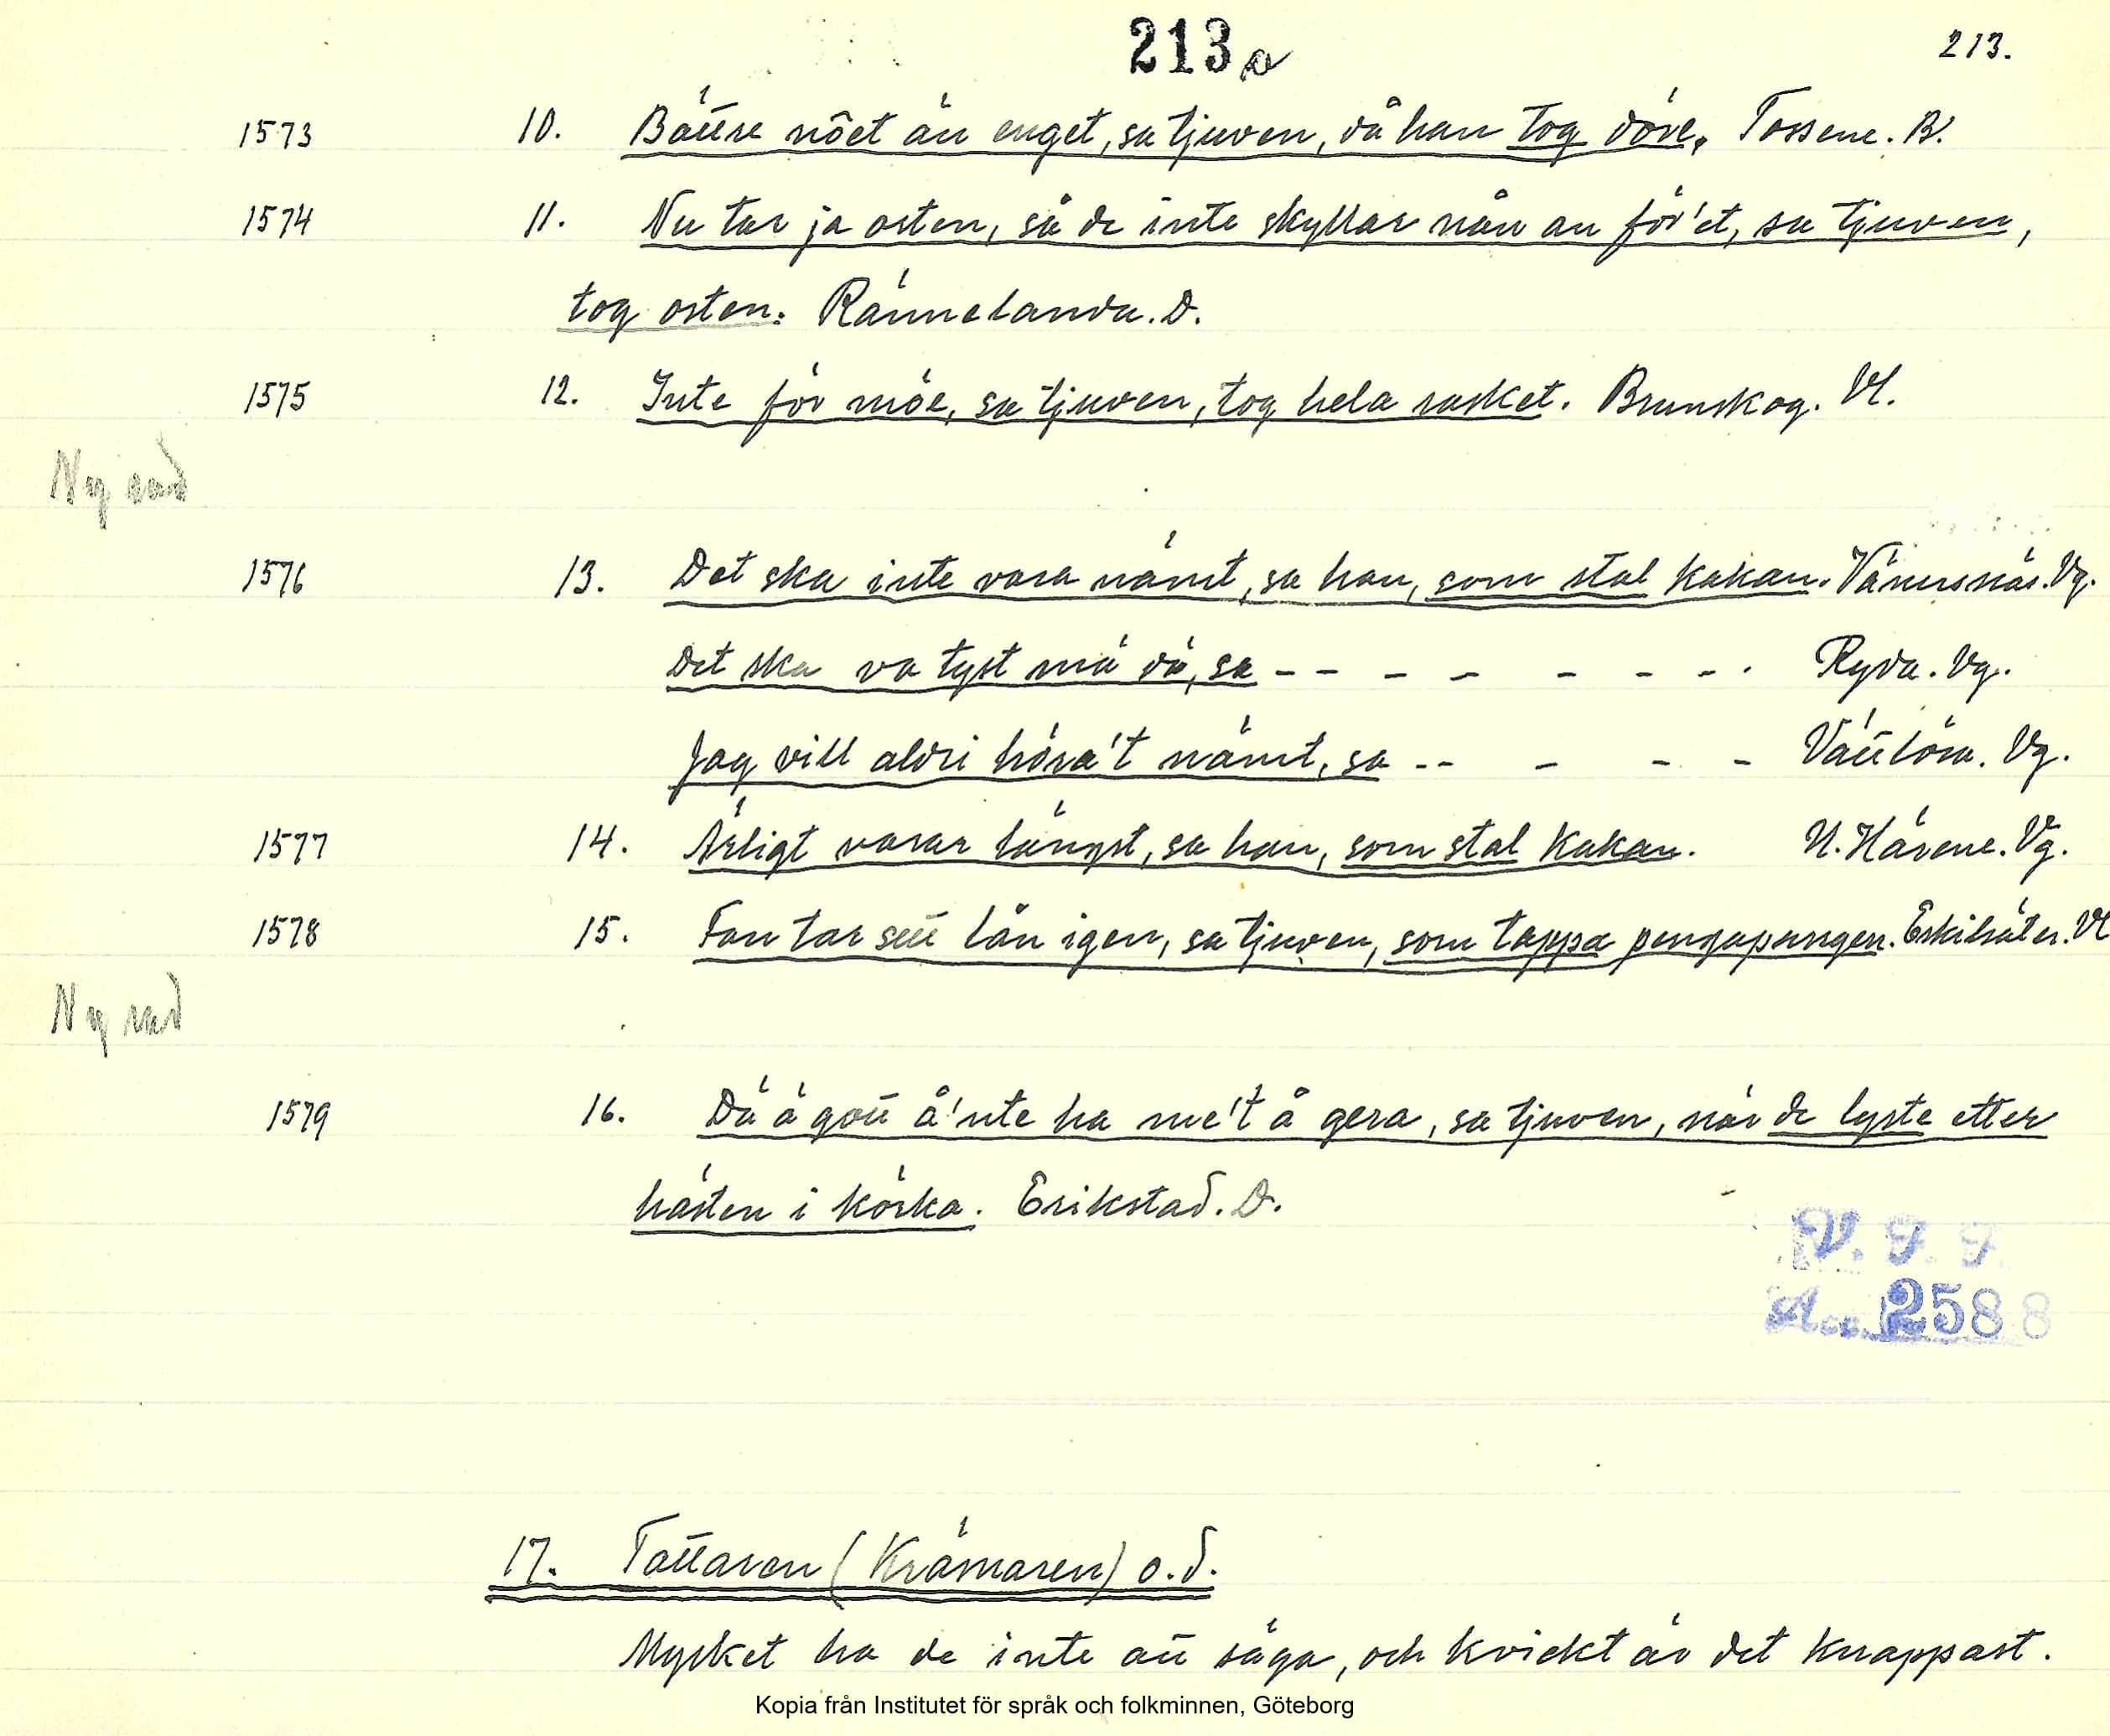 213a 213.
1573 10. Bättre nôet än enget, sa tjuven, då han tog döve. Tossene. B.
1574 11. Nu tar ja osten, så de inte skyllar nån an för'et, sa tjuven,
tog osten. Rännelanda. D.
1575 12. Inte för möe, sa tjuven, tog hela rasket. Brunskog. Vl.
Ny rad
1576 13. Det ska inte vara nämt, sa han, som stal kakan. Vänersnäs. Vg.
Det ska va tyst mä dä, sa - - - - - - - . Ryda. Vg.
Jag vill aldri höra't nämt, sa - - - - - Vättlösa. Vg.
1577 14. Ärligt varar längst, sa han, som stal kakan. N. Härene. Vg.
1578 15. Fan tar sitt lån igen, sa tjuven, som tappa pengapungen. Eskilsäter. Vl
Ny rad
1579 16. Dä ä gott å'nte ha me't å gera, sa tjuven, när de lyste etter
hästen i körka. Erikstad. D.
V. F. F.
Acc. 2588
17. Tattaren (Krämaren) o.d.
Mycket ha de inte att säga, och kvickt är det knappast.
Kopia från Institutet för språk och folkminnen, Göteborg